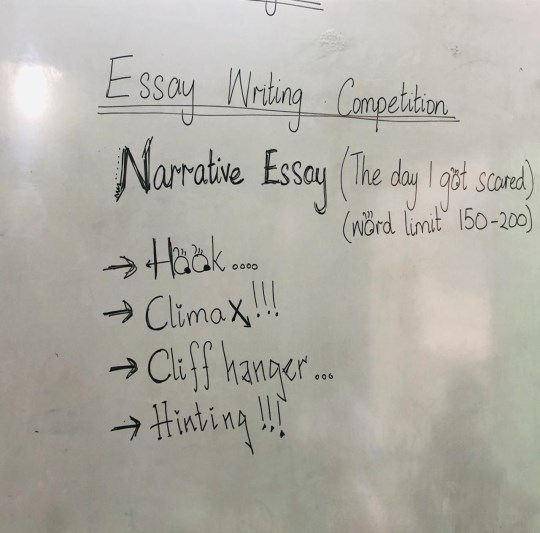 Essay Writing Competition
Narrative Essay (The day I got scared)
(word limit 150-200)
→ Hook....
→ Climax!!!
→ Cliff hanger...
→ Hinting!!!